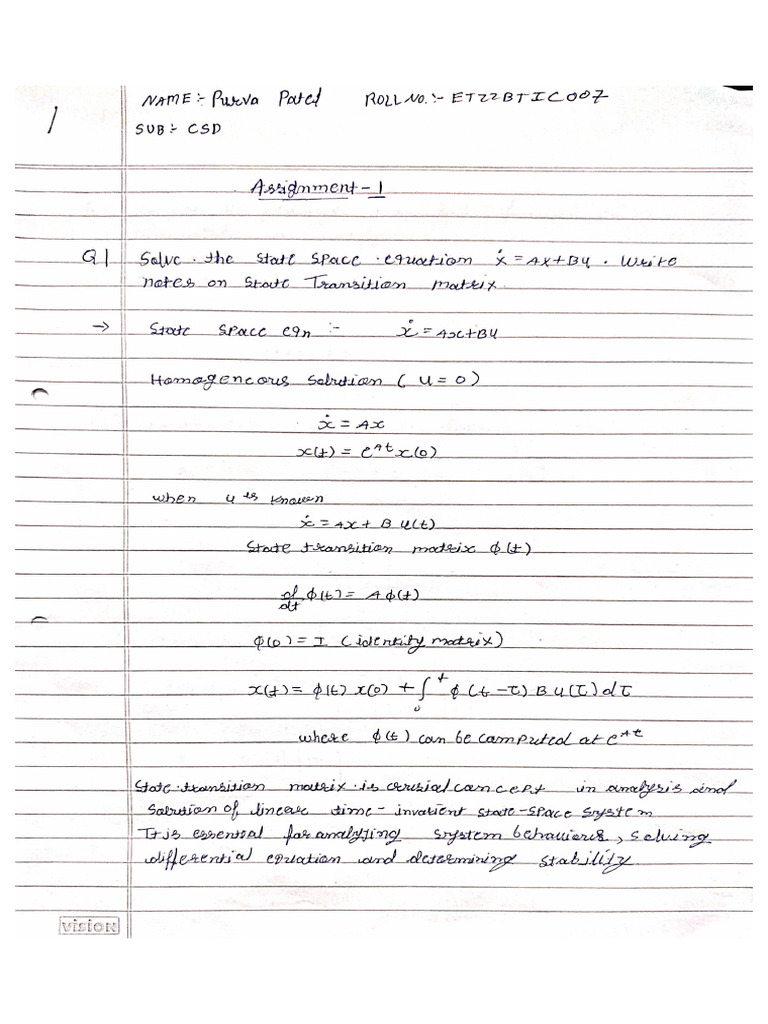 NAME:- Purva Patel ROLL NO.:- ET22BTIC007
1
SUB:- CSD
Assignment-1
Q1 Solve the state space equation ẋ = Ax+Bu. Write
notes on State Transition matrix.
→ State space eqn :- ẋ = Ax+Bu
Homogeneous solution (u=0)
ẋ = Ax
x(t) = e^At x(0)
when u is known
ẋ = Ax + B u(t)
State transition matrix φ(t)
d/dt φ(t) = A φ(t)
φ(0) = I (identity matrix)
x(t) = φ(t) x(0) + ∫₀ᵗ φ(t-τ) B u(τ) dτ
where φ(t) can be computed at e^At
State transition matrix is crucial concept in analysis and
solution of linear time-invarient state-space system
It is essential for analying system behaviours, solving
differential equation and determining stability
vision